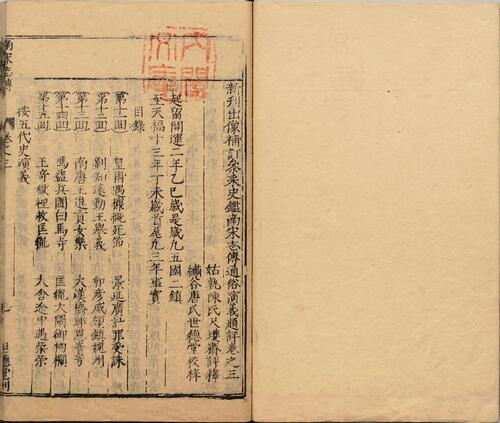 新刊出像補訂參采史鑑南宋志傳通俗演義題評卷之三
姑孰陳氏尺蠖齋評釋
繡谷唐氏世德堂校梓
起晉開運二年乙巳歲是歲凡五國三鎮
至天福十三年丁未歲首尾凡三年事實
目錄
第十一回 皇甫遇慷慨死節 景延廣計罪受誅
第十二回 劉知遠勸王舉義 郭彥威領鎮視州
第十三回 南唐主進貢女樂 大漢橋邊
第十四回 馬盜兵圍白馬寺 匡胤大鬧御枸欄
第十五回 王奇獄裡救匡胤 大舍途中遇柴榮
按五代史演義
卷之三
一
世德堂刊
內閣文庫